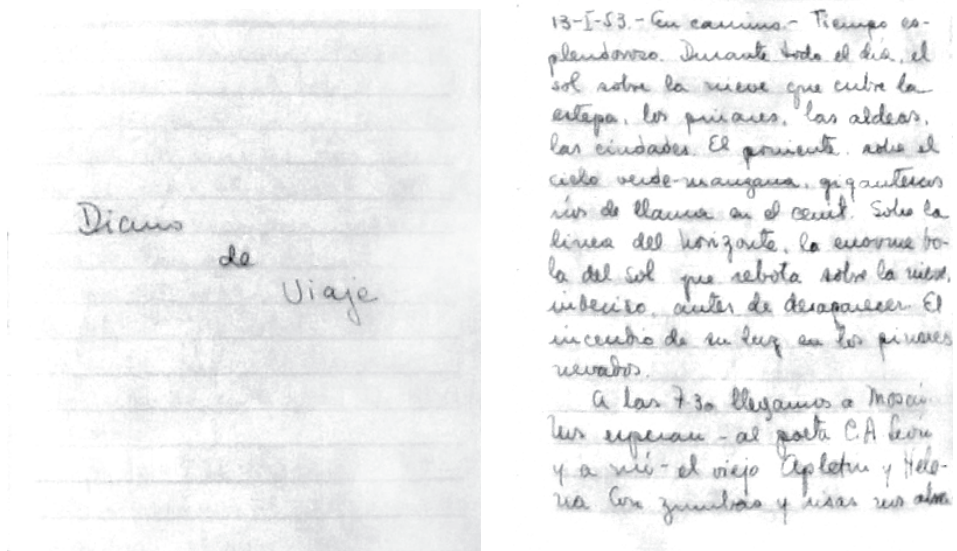 Diario
de
Viaje
13-I-53.- En camino.- Tiempo es-
plendoroso. Durante todo el día, el
sol sobre la nieve que cubre la
estepa, los pinares, las aldeas,
las ciudades. El poniente, sobre el
cielo verde-manzana, gigantescos
ríos de llama en el cenit. Sobre la
línea del horizonte, la enorme bo-
la del sol que rebota sobre la nieve,
indeciso, antes de desaparecer. El
incendio de su luz en los pinares
nevados.
A las 7.30 llegamos a Moscú
Nos esperan - al poeta C.A. León
y a mí - el viejo Apletin y Hele-
na Con zumbas y risas nos